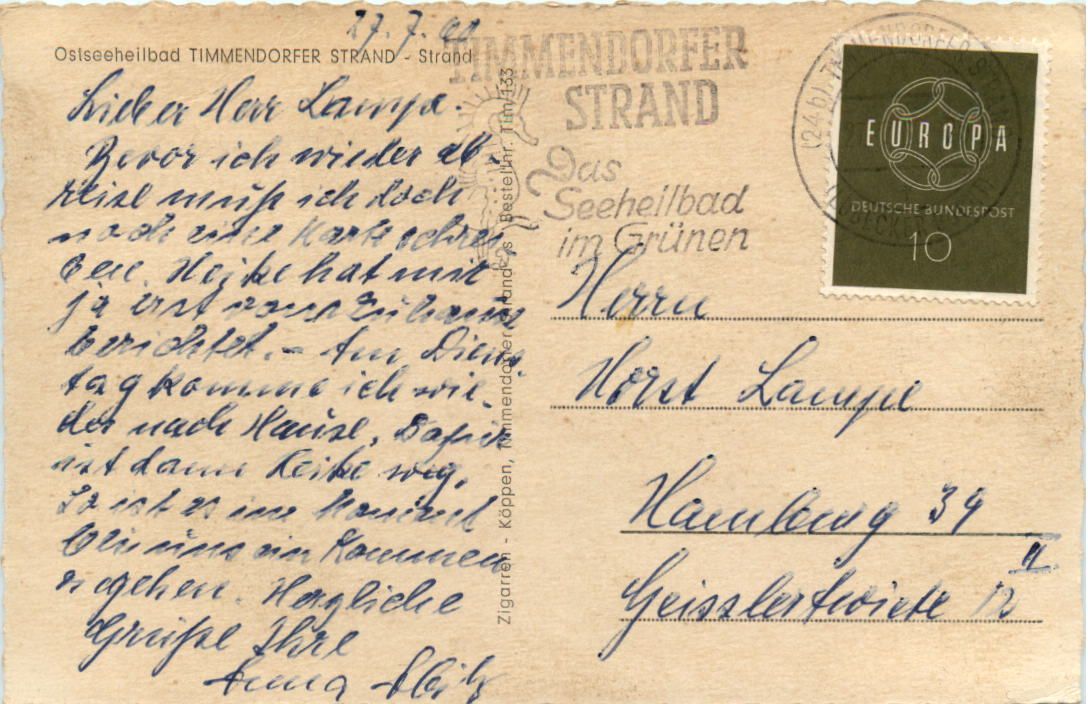 27.7.60
Ostseeheilbad TIMMENDORFER STRAND - Strand
Lieber Herr Lampe.
Bevor ich wieder ab-
reise muß ich doch
noch eine Karte schrei-
ben. Heike hat mir
ja erst von zu hause
berichtet. - Am Diens-
tag komme ich wie-
der nach Hause. Dafür
ist dann Heike weg.
So ist es im Moment
bei uns ein Kommen
u gehen. Herzliche
Grüße Ihre
Anna
Zigarren - Köppen, Timmendorfer Strand
Bestellnr. Tim 133
TIMMENDORFER
STRAND
Das
Seeheilbad
im Grünen
(24b) TIMMENDORFER STRAND
EUROPA
DEUTSCHE BUNDESPOST
10
Herrn
Horst Lampe
Hamburg 39
II
Geisslertwiete 12